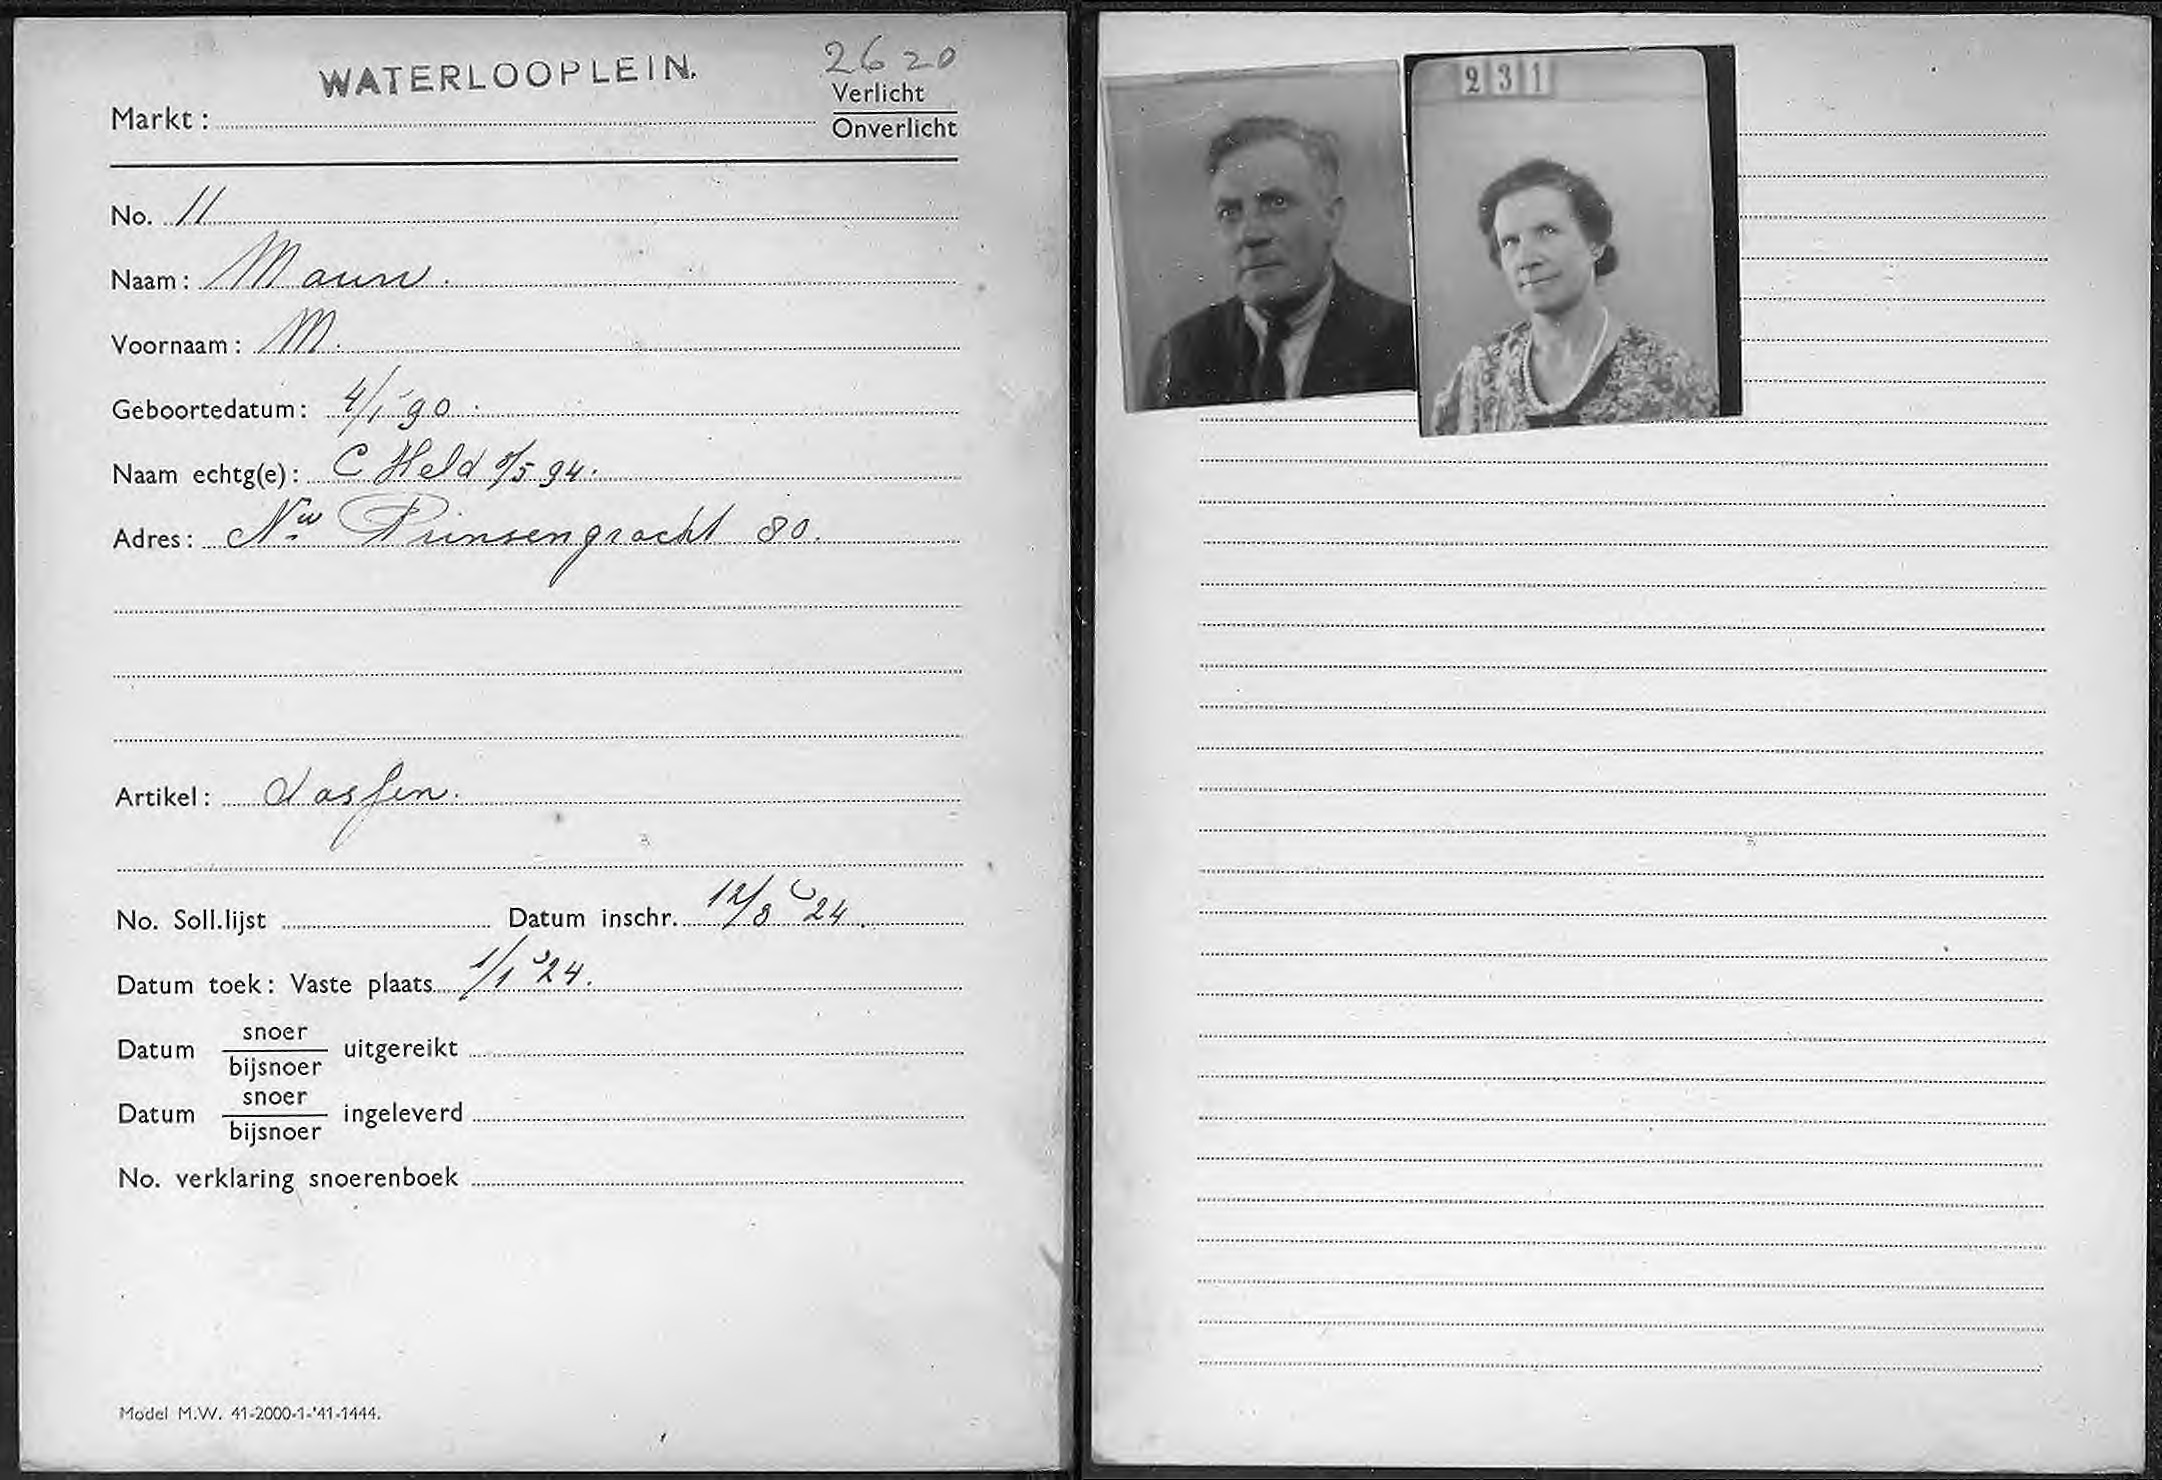 WATERLOOPLEIN.
2620
Markt:
Verlicht
Onverlicht
No. 11
Naam: Maun.
Voornaam: M.
Geboortedatum: 4/1 '90.
Naam echtg(e): C Held 8/5 94.
Adres: Nw. Prinsengracht 80.
Artikel:
No. Soll.lijst Datum inschr. 12/8 '24.
Datum toek: Vaste plaats 1/1 '24.
Datum snoer/bijsnoer uitgereikt
Datum snoer/bijsnoer ingeleverd
No. verklaring snoerenboek
Model M.W. 41-2000-1-'41-1444.
231